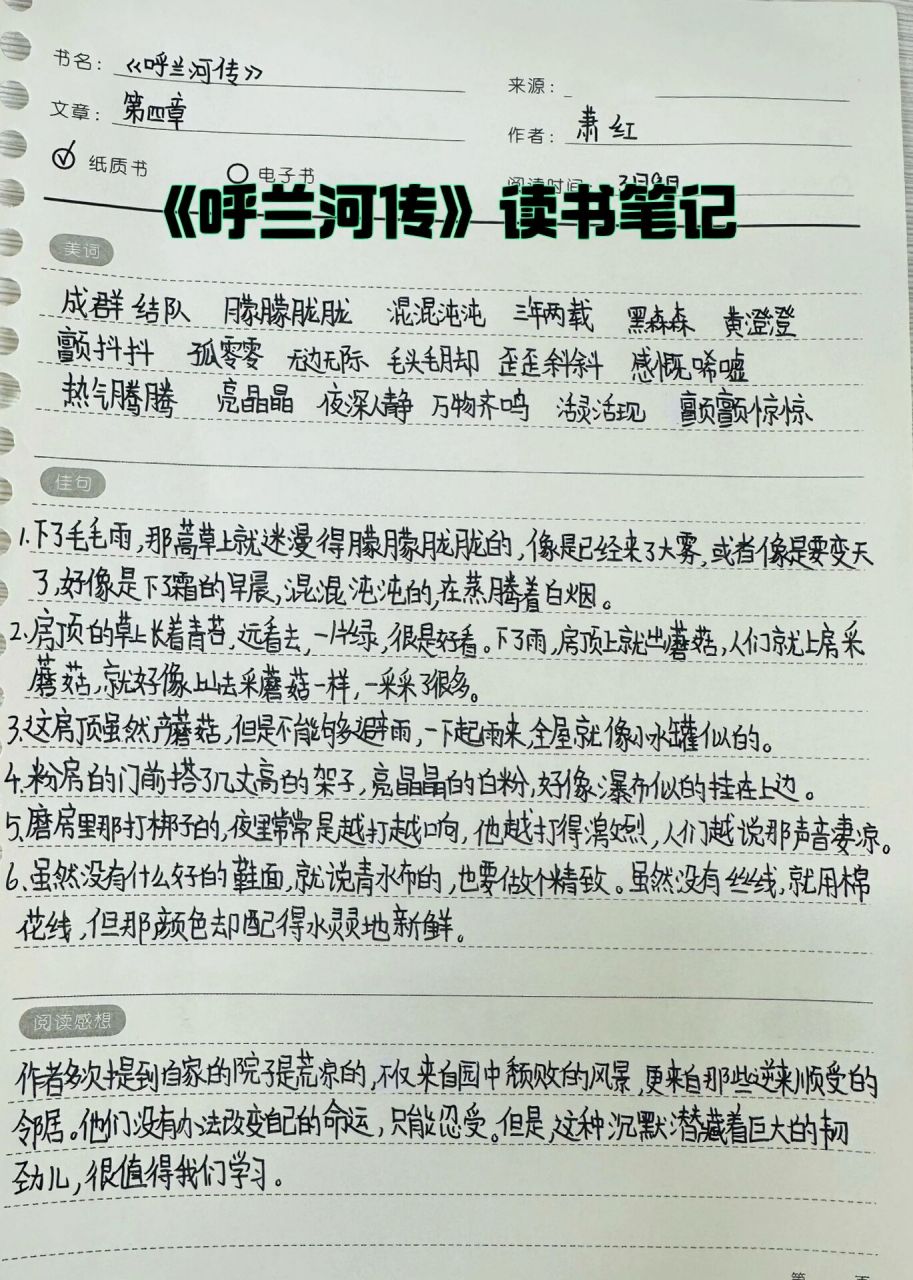 书名：《呼兰河传》
来源：
文章：第四章
作者：萧红
纸质书 电子书
阅读时间
《呼兰河传》读书笔记
美词
成群结队 朦朦胧胧 混混沌沌 三年两载 黑森森 黄澄澄
颤抖抖 孤零零 无边无际 毛头毛脚 歪歪斜斜 感慨唏嘘
热气腾腾 亮晶晶 夜深人静 万物齐鸣 活灵活现 颤颤惊惊
佳句
1.下了毛毛雨，那蒿草上就迷漫得朦朦胧胧的，像是已经来了大雾，或者像是要变天
了，好像是下了霜的早晨，混混沌沌的，在蒸腾着白烟。
2.房顶的草上长着青苔，远看去，一片绿，很是好看。下了雨，房顶上就出蘑菇，人们就上房采
蘑菇，就好像上山去采蘑菇一样，一采采了很多。
3.这房顶虽然产蘑菇，但是不能够多避雨，一下起雨来，全屋就像小水罐似的。
4.粉房的门前搭了几丈高的架子，亮晶晶的白粉，好像瀑布似的挂在上边。
5.磨房里那打梆子的，夜里常常是越打越响，他越打得激烈，人们越说那声音凄凉。
6.虽然没有什么好的鞋面，就说青水布的，也要做个精致。虽然没有丝线，就用棉
花线，但那颜色却配得水灵灵地新鲜。
阅读感想
作者多次提到自家的院子是荒凉的，不仅来自园中颓败的风景，更来自那些逆来顺受的
邻居。他们没有办法改变自己的命运，只能忍受。但是，这种沉默潜藏着巨大的韧
劲儿，很值得我们学习。